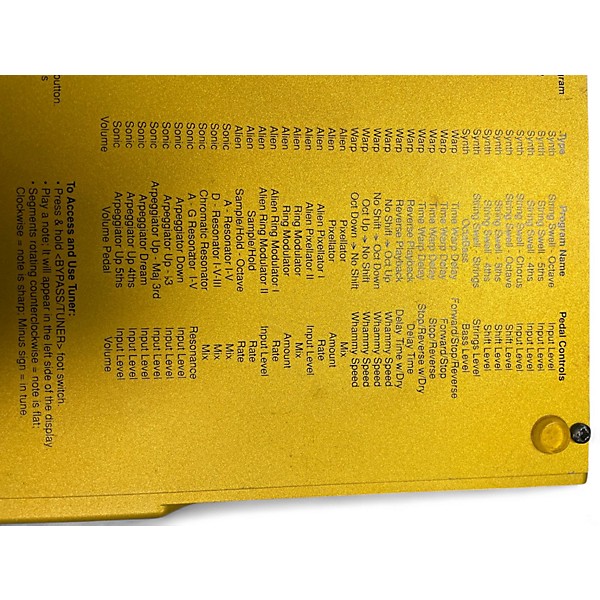 ram
Type Program Name Pedal Controls
Synth String Swell - Octave Input Level
Synth String Swell - 5ths Input Level
Synth String Swell - 4ths Input Level
Synth String - Chorus Input Level
Synth String Swell - Octave Shift Level
Synth String Swell - 5ths Shift Level
Synth String Swell - 4ths Shift Level
Synth Octave - Strings Strings Level
Synth OctBass Bass Level
Warp Time Warp Delay Forward/Stop/Reverse
Warp Time Warp Delay Forward/Stop
Warp Time Warp Delay Stop/Reverse
Warp Time Warp Delay Stop/Reverse w/Dry
Warp Reverse Playback Delay Time
Warp Reverse Playback Delay Time w/Dry
Warp No Shift -> Oct Up Whammy Speed
Warp No Shift -> Oct Down Whammy Speed
Warp Oct Up -> No Shift Whammy Speed
Warp Oct Down -> No Shift Whammy Speed
Alien Pixellator Mix
Alien Pixellator Rate
Alien Alien Pixellator I Amount
Alien Alien Pixellator II Input Level
Alien Ring Modulator Amount
Alien Ring Modulator Mix
Alien Alien Ring Modulator I Input Level
Alien Alien Ring Modulator II Rate
Alien Sample/Hold Rate
Alien Sample/Hold - Octave Rate
Sonic A - Resonator I-V Mix
Sonic D - Resonator I-V-III Mix
Sonic Chromatic Resonator Mix
Sonic A - G Resonator I-V Resonance
Sonic Arpeggiator Down Input Level
Sonic Arpeggiator Up -3 Input Level
Sonic Arpeggiator - Maj 3rd Input Level
Sonic Arpeggiator Dream Input Level
Sonic Arpeggiator Up 4ths Input Level
Sonic Arpeggiator Up 5ths Input Level
Volume Volume Pedal Volume
To Access and Use Tuner:
button
s
• Press & hold <BYPASS/TUNER> foot switch.
• Play a note; It will appear in the left side of the display
• Segments rotating counterclockwise = note is flat;
Clockwise = note is sharp. Minus sign = in tune.